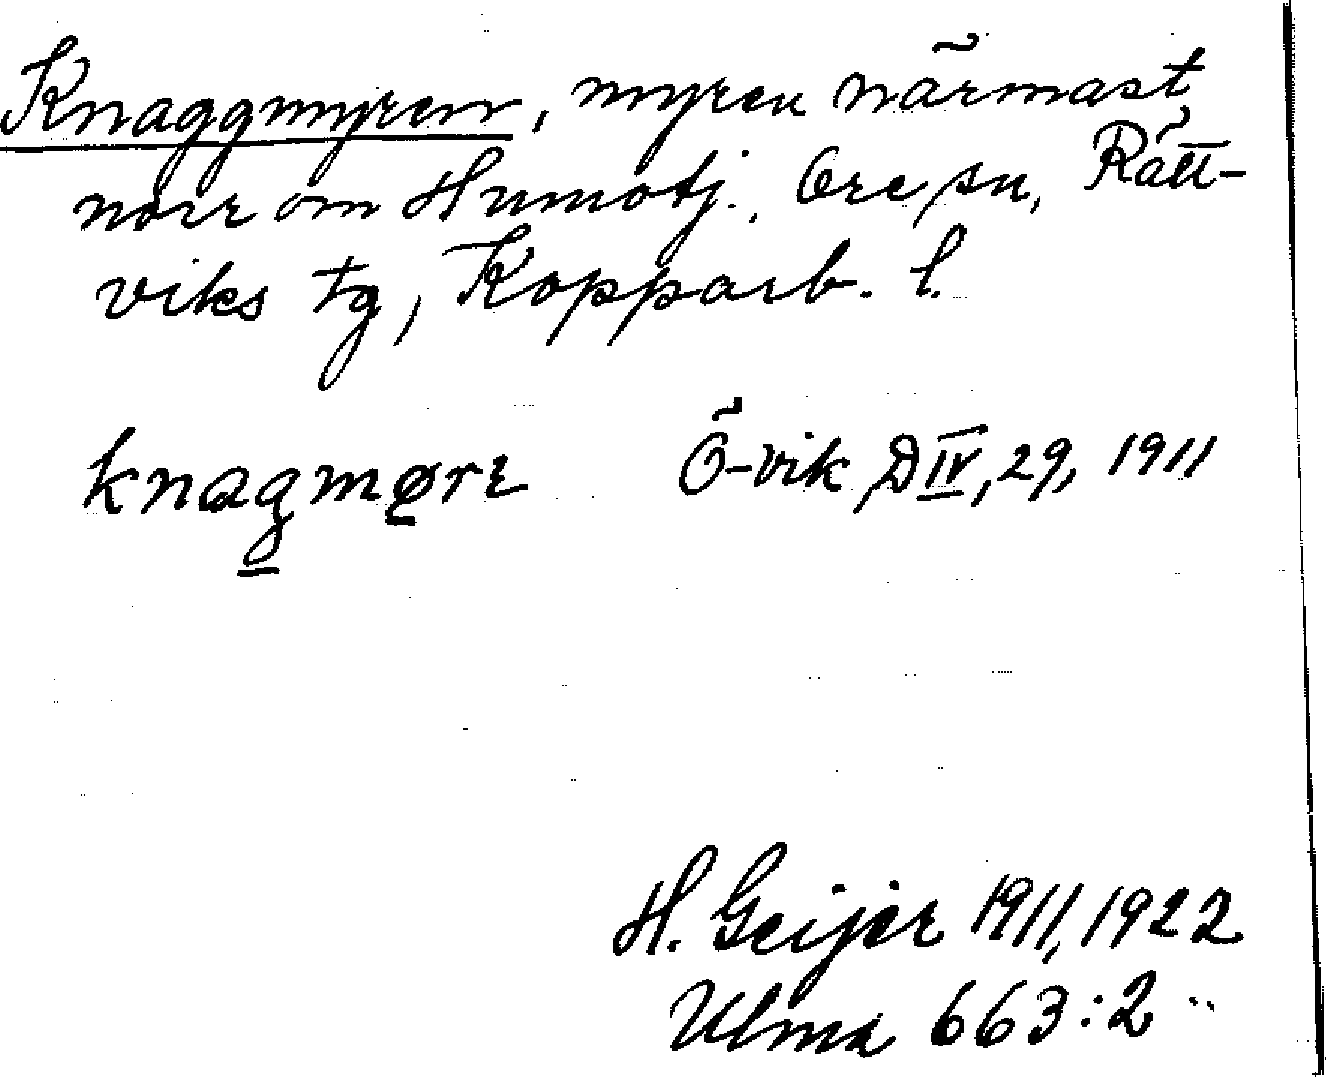 Knaggmyren, myren närmast
norr om Humotj., Ore sn, Rätt-
viks tg, Kopparb. l.
knagmøre Ö-vik, D IV, 29, 1911
H. Geijer 1911, 1922
Ulma 663:2